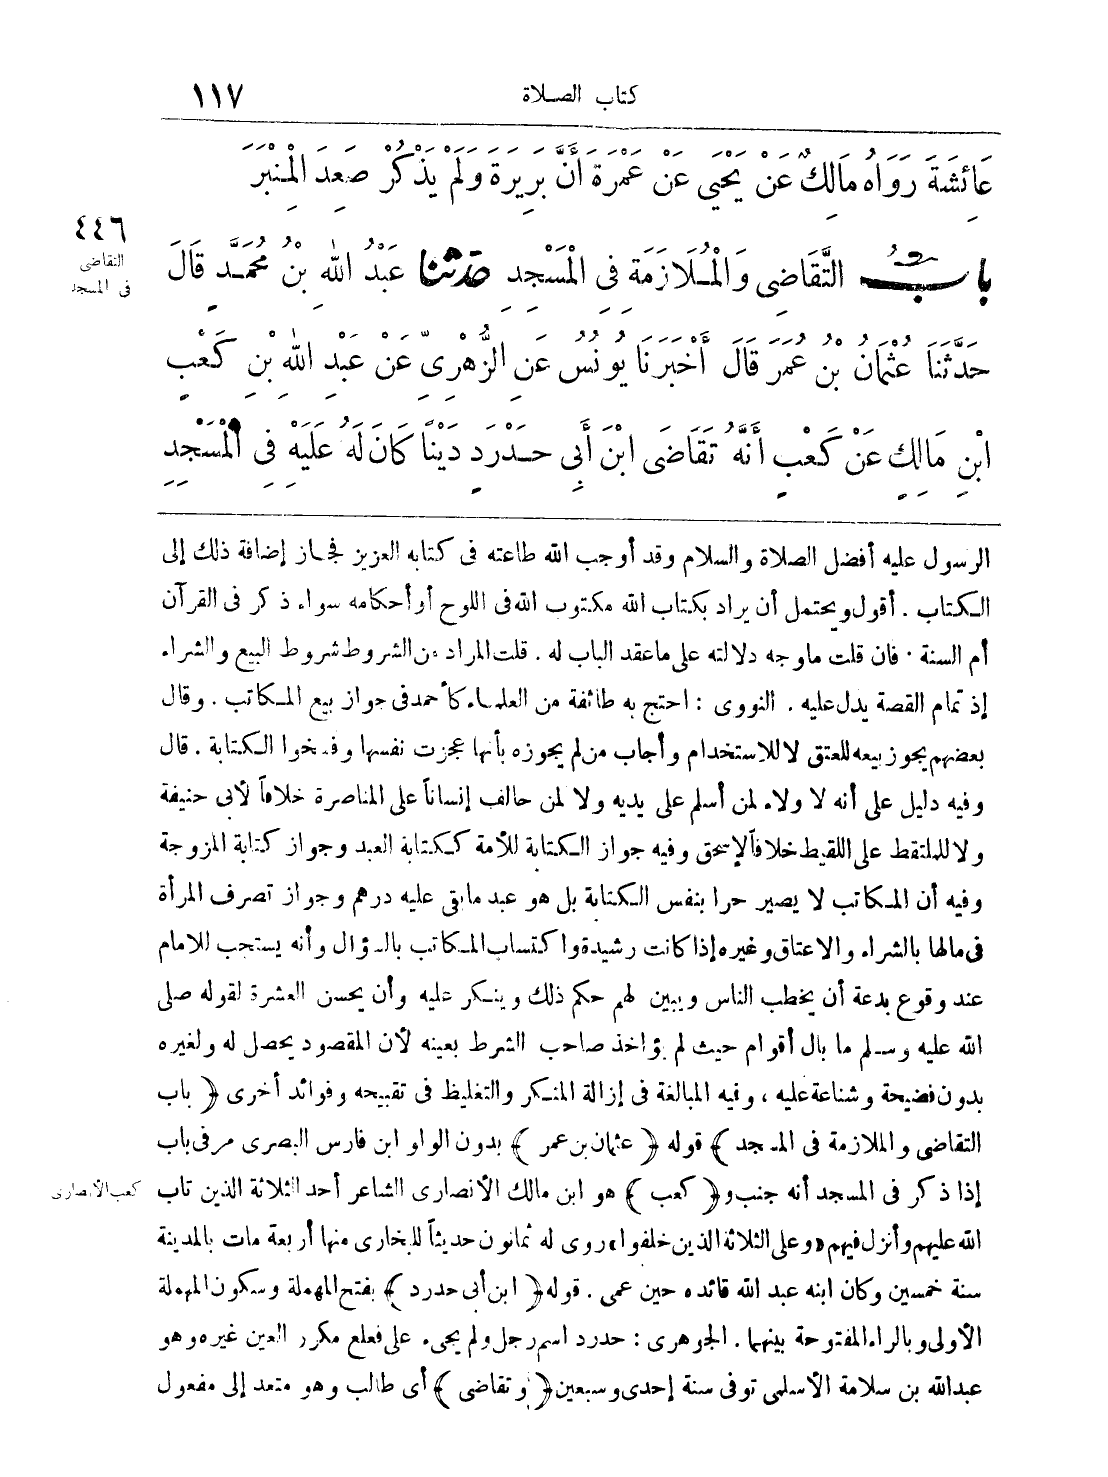 كتاب الصلاة ١١٧
عَائِشَةَ رَوَاهُ مَالِكٌ عَنْ يَحْيَى عَنْ عَمْرَةَ أَنَّ بَرِيرَةَ وَلَمْ يَذْكُرْ صَعِدَ الْمِنْبَرَ
بابُ التَّقَاضِي وَالْمُلَازَمَةِ فِي الْمَسْجِدِ حدثنا عَبْدُ اللهِ بْنُ مُحَمَّدٍ قَالَ
٤٤٦
التقاضي
في المسجد
حَدَّثَنَا عُثْمَانُ بْنُ عُمَرَ قَالَ أَخْبَرَنَا يُونُسُ عَنِ الزُّهْرِيِّ عَنْ عَبْدِ اللهِ بْنِ كَعْبِ
ابْنِ مَالِكٍ عَنْ كَعْبٍ أَنَّهُ تَقَاضَى ابْنَ أَبِي حَدْرَدٍ دَيْنًا كَانَ لَهُ عَلَيْهِ فِي الْمَسْجِدِ
الرسول عليه أفضل الصلاة والسلام وقد أوجب الله طاعته في كتابه العزيز فجاز إضافة ذلك إلى
الكتاب . أقول ويحتمل أن يراد بكتاب الله مكتوب الله في اللوح أو أحكامه سواء ذكر في القرآن
أم السنة . فان قلت ما وجه دلالته على ما عقد الباب له . قلت المراد من الشروط شروط البيع والشراء
إذ تمام القصة يدل عليه . النووي : احتج به طائفة من العلماء كأحمد في جواز بيع المكاتب . وقال
بعضهم يجوز بيعه للعتق لا للاستخدام وأجاب من لم يجوزه بأنها عجزت نفسها وفسخوا الكتابة . قال
وفيه دليل على أنه لا ولاء لمن أسلم على يديه ولا لمن حالف إنساناً على المناصرة خلافاً لأبي حنيفة
ولا للملتقط على اللقيط خلافاً لإسحق وفيه جواز الكتابة للأمة ككتابة العبد وجواز كتابة المزوجة
وفيه أن المكاتب لا يصير حرا بنفس الكتابة بل هو عبد ما بقي عليه درهم وجواز تصرف المرأة
في مالها بالشراء والاعتاق وغيره إذا كانت رشيدة واكتساب المكاتب بالسؤال وأنه يستحب للامام
عند وقوع بدعة أن يخطب الناس ويبين لهم حكم ذلك وينكر عليه وأن يحسن العشرة لقوله صلى
الله عليه وسلم ما بال أقوام حيث لم يؤاخذ صاحب الشرط بعينه لأن المقصود يحصل له ولغيره
بدون فضيحة وشناعة عليه ، وفيه المبالغة في إزالة المنكر والتغليظ في تقبيحه وفوائد أخرى ﴿ باب
التقاضي والملازمة في المسجد ﴾ قوله ﴿ عثمان بن عمر ﴾ بدون الواو ابن فارس البصري مر في باب
إذا ذكر في المسجد أنه جنب و﴿ كعب ﴾ هو ابن مالك الأنصاري الشاعر أحد الثلاثة الذين تاب
كعب الأنصاري
الله عليهم وأنزل فيهم «وعلى الثلاثة الذين خلفوا» روى له ثمانون حديثاً للبخاري منها أربعة مات بالمدينة
سنة خمسين وكان ابنه عبد الله قائده حين عمى . قوله ﴿ ابن أبي حدرد ﴾ بفتح المهملة وسكون المهملة
الأولى وبالراء المفتوحة بينهما . الجوهري : حدرد اسم رجل ولم يجيء على فعلع مكرر العين غيره وهو
عبد الله بن سلامة الأسلمى توفى سنة إحدى وسبعين ﴿ وتقاضى ﴾ أي طالب وهو متعد إلى مفعول